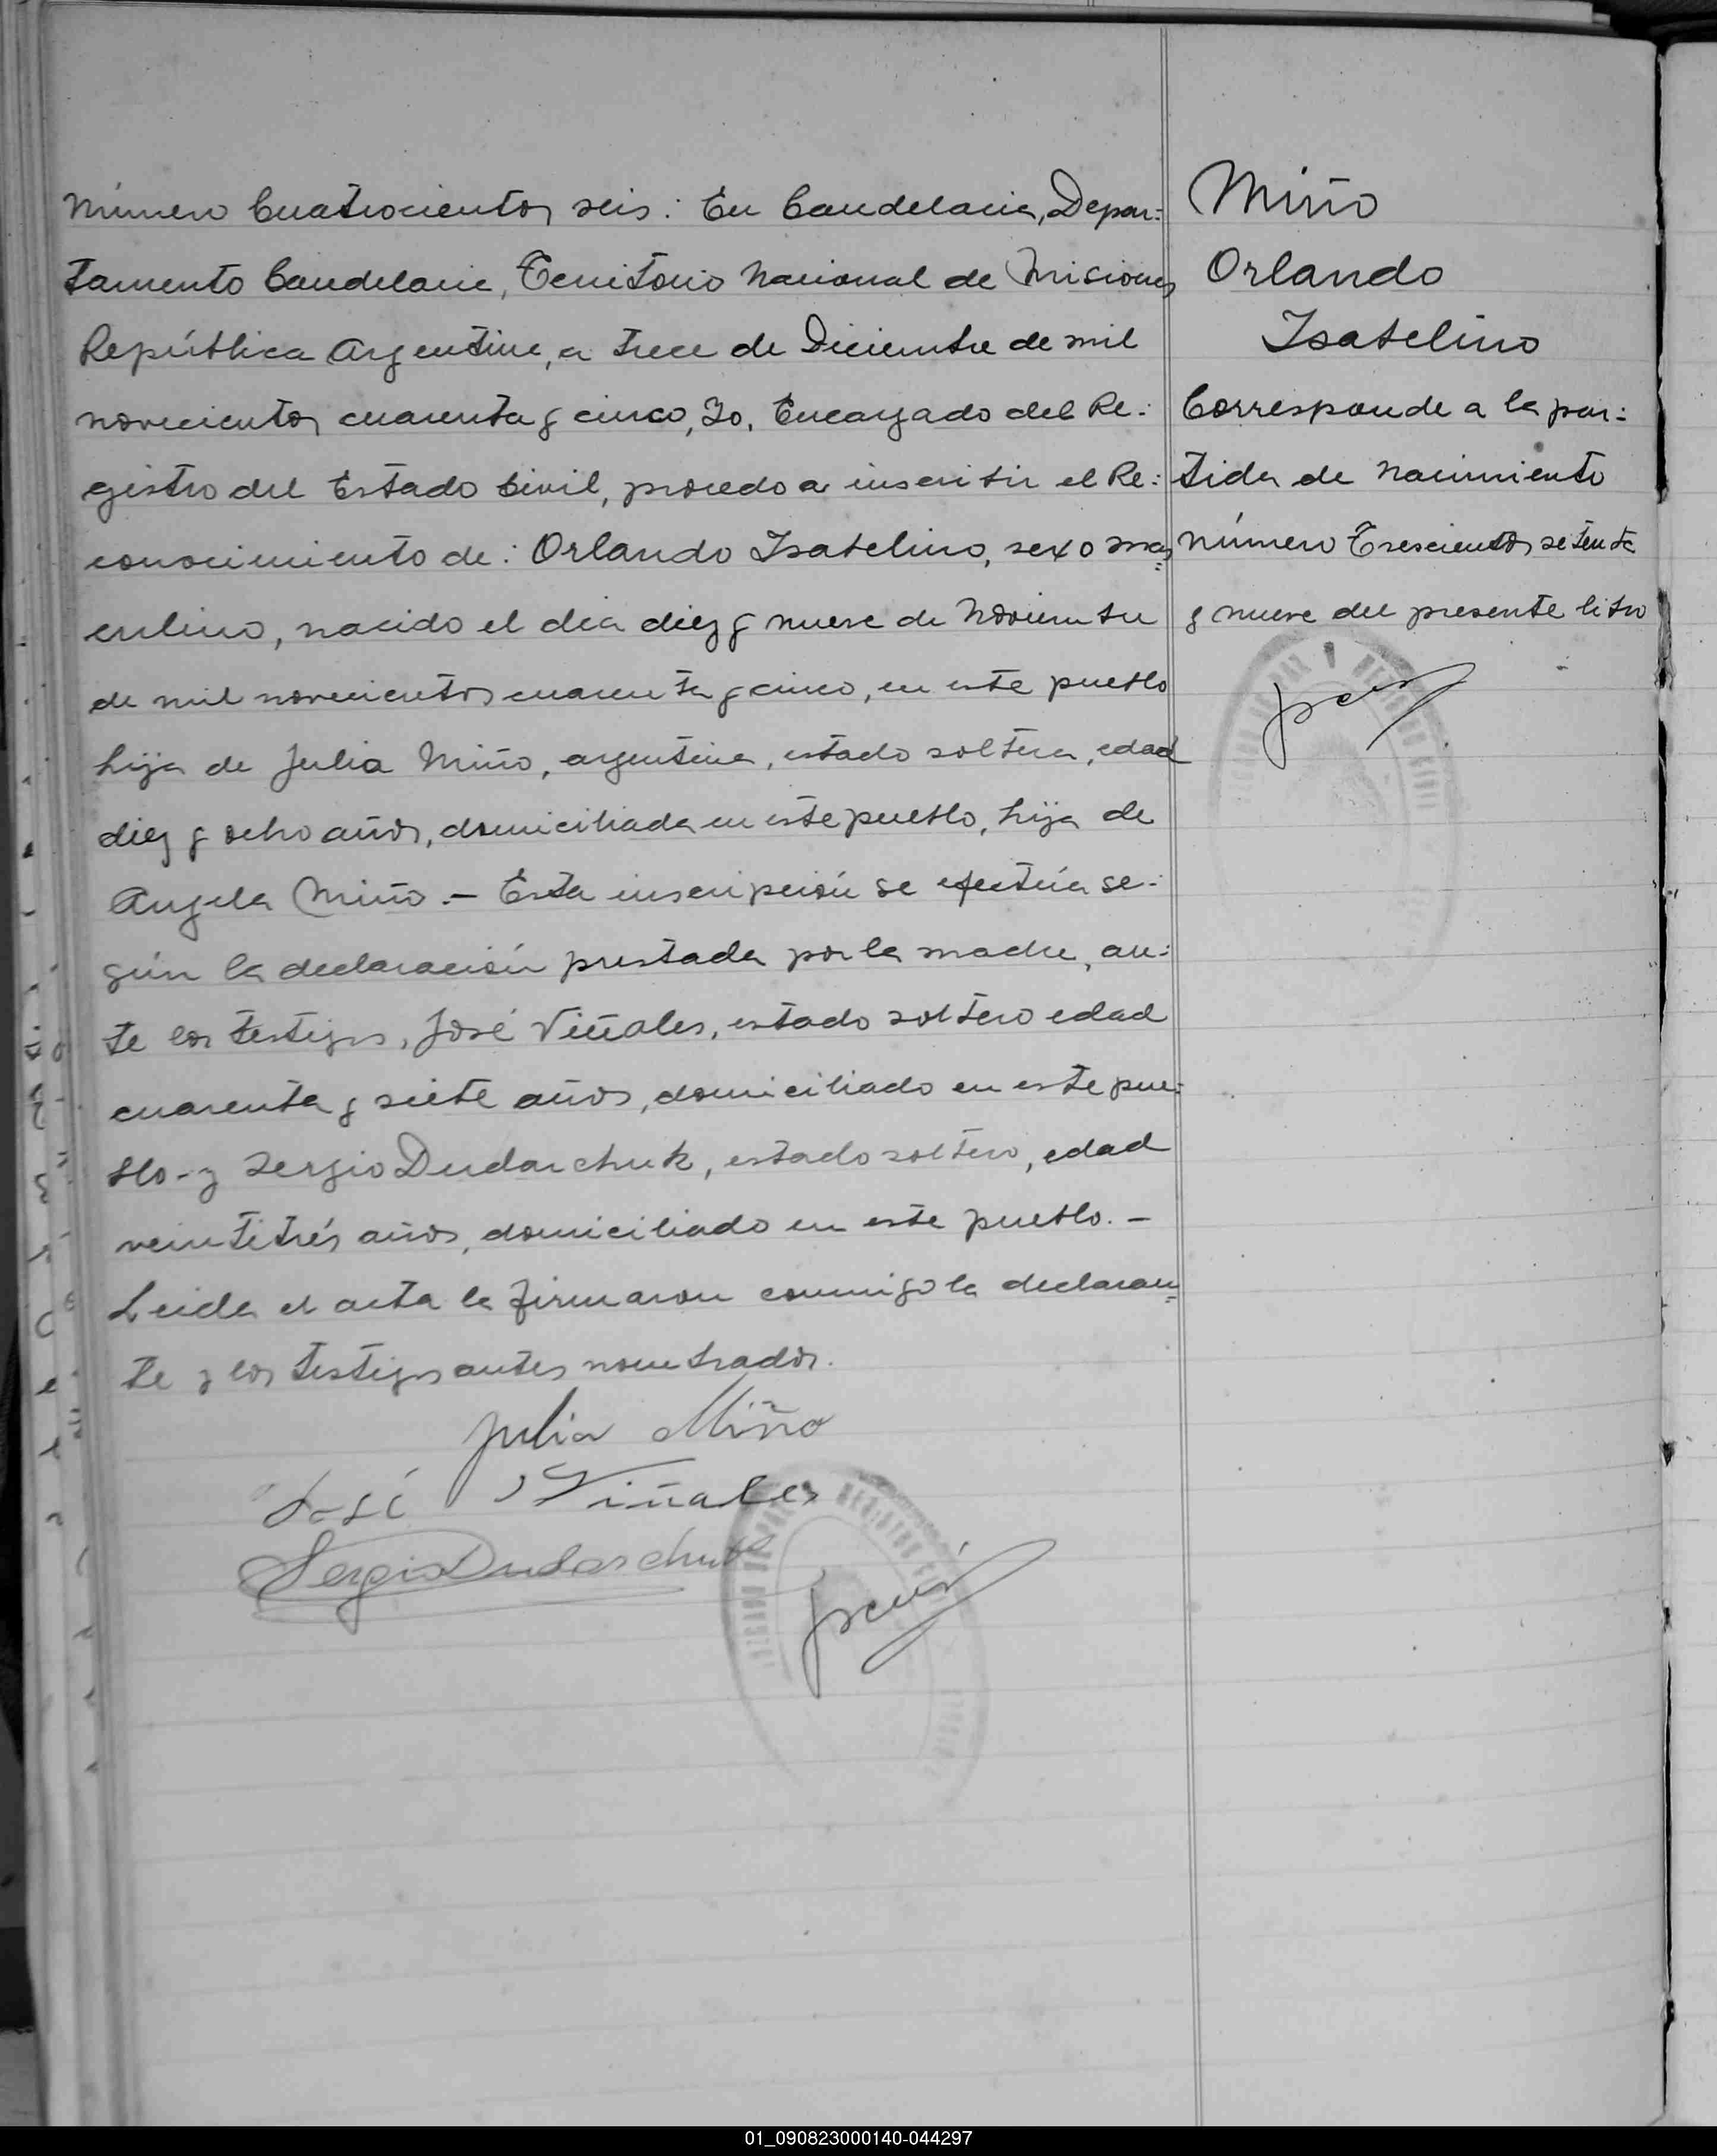 Número Cuatrocientos seis: En Candelaria, Depar=
tamento Candelaria, Territorio Nacional de Misiones
República Argentina, a trece de Diciembre de mil
novecientos cuarenta y cinco, Yo, Encargado del Re=
gistro del Estado Civil, procedo a inscribir el Re=
conocimiento de: Orlando Isabelino, sexo mas=
culino, nacido el dia diez y nueve de Noviembre
de mil novecientos cuarenta y cinco, en este pueblo
hijo de Julia Miño, argentina, estado soltera, edad
diez y ocho años, domiciliada en este pueblo, hija de
Angela Miño.- Esta inscripción se efectúa se=
gún la declaración prestada por la madre, an=
te los testigos, José Viñales, estado soltero edad
cuarenta y siete años, domiciliado en este pue=
blo-y Sergio Dudarchuk, estado soltero, edad
veintitrés años, domiciliado en este pueblo.-
Leida el acta la firmaron conmigo la declaran=
te y los testigos antes nombrados.
Julia Miño
José Viñales
Sergio Dudarchuk
Miño
Orlando
Isabelino
Corresponde a la par=
tida de Nacimiento
número Trescientos setenta
y nueve del presente libro
01_090823000140-044297